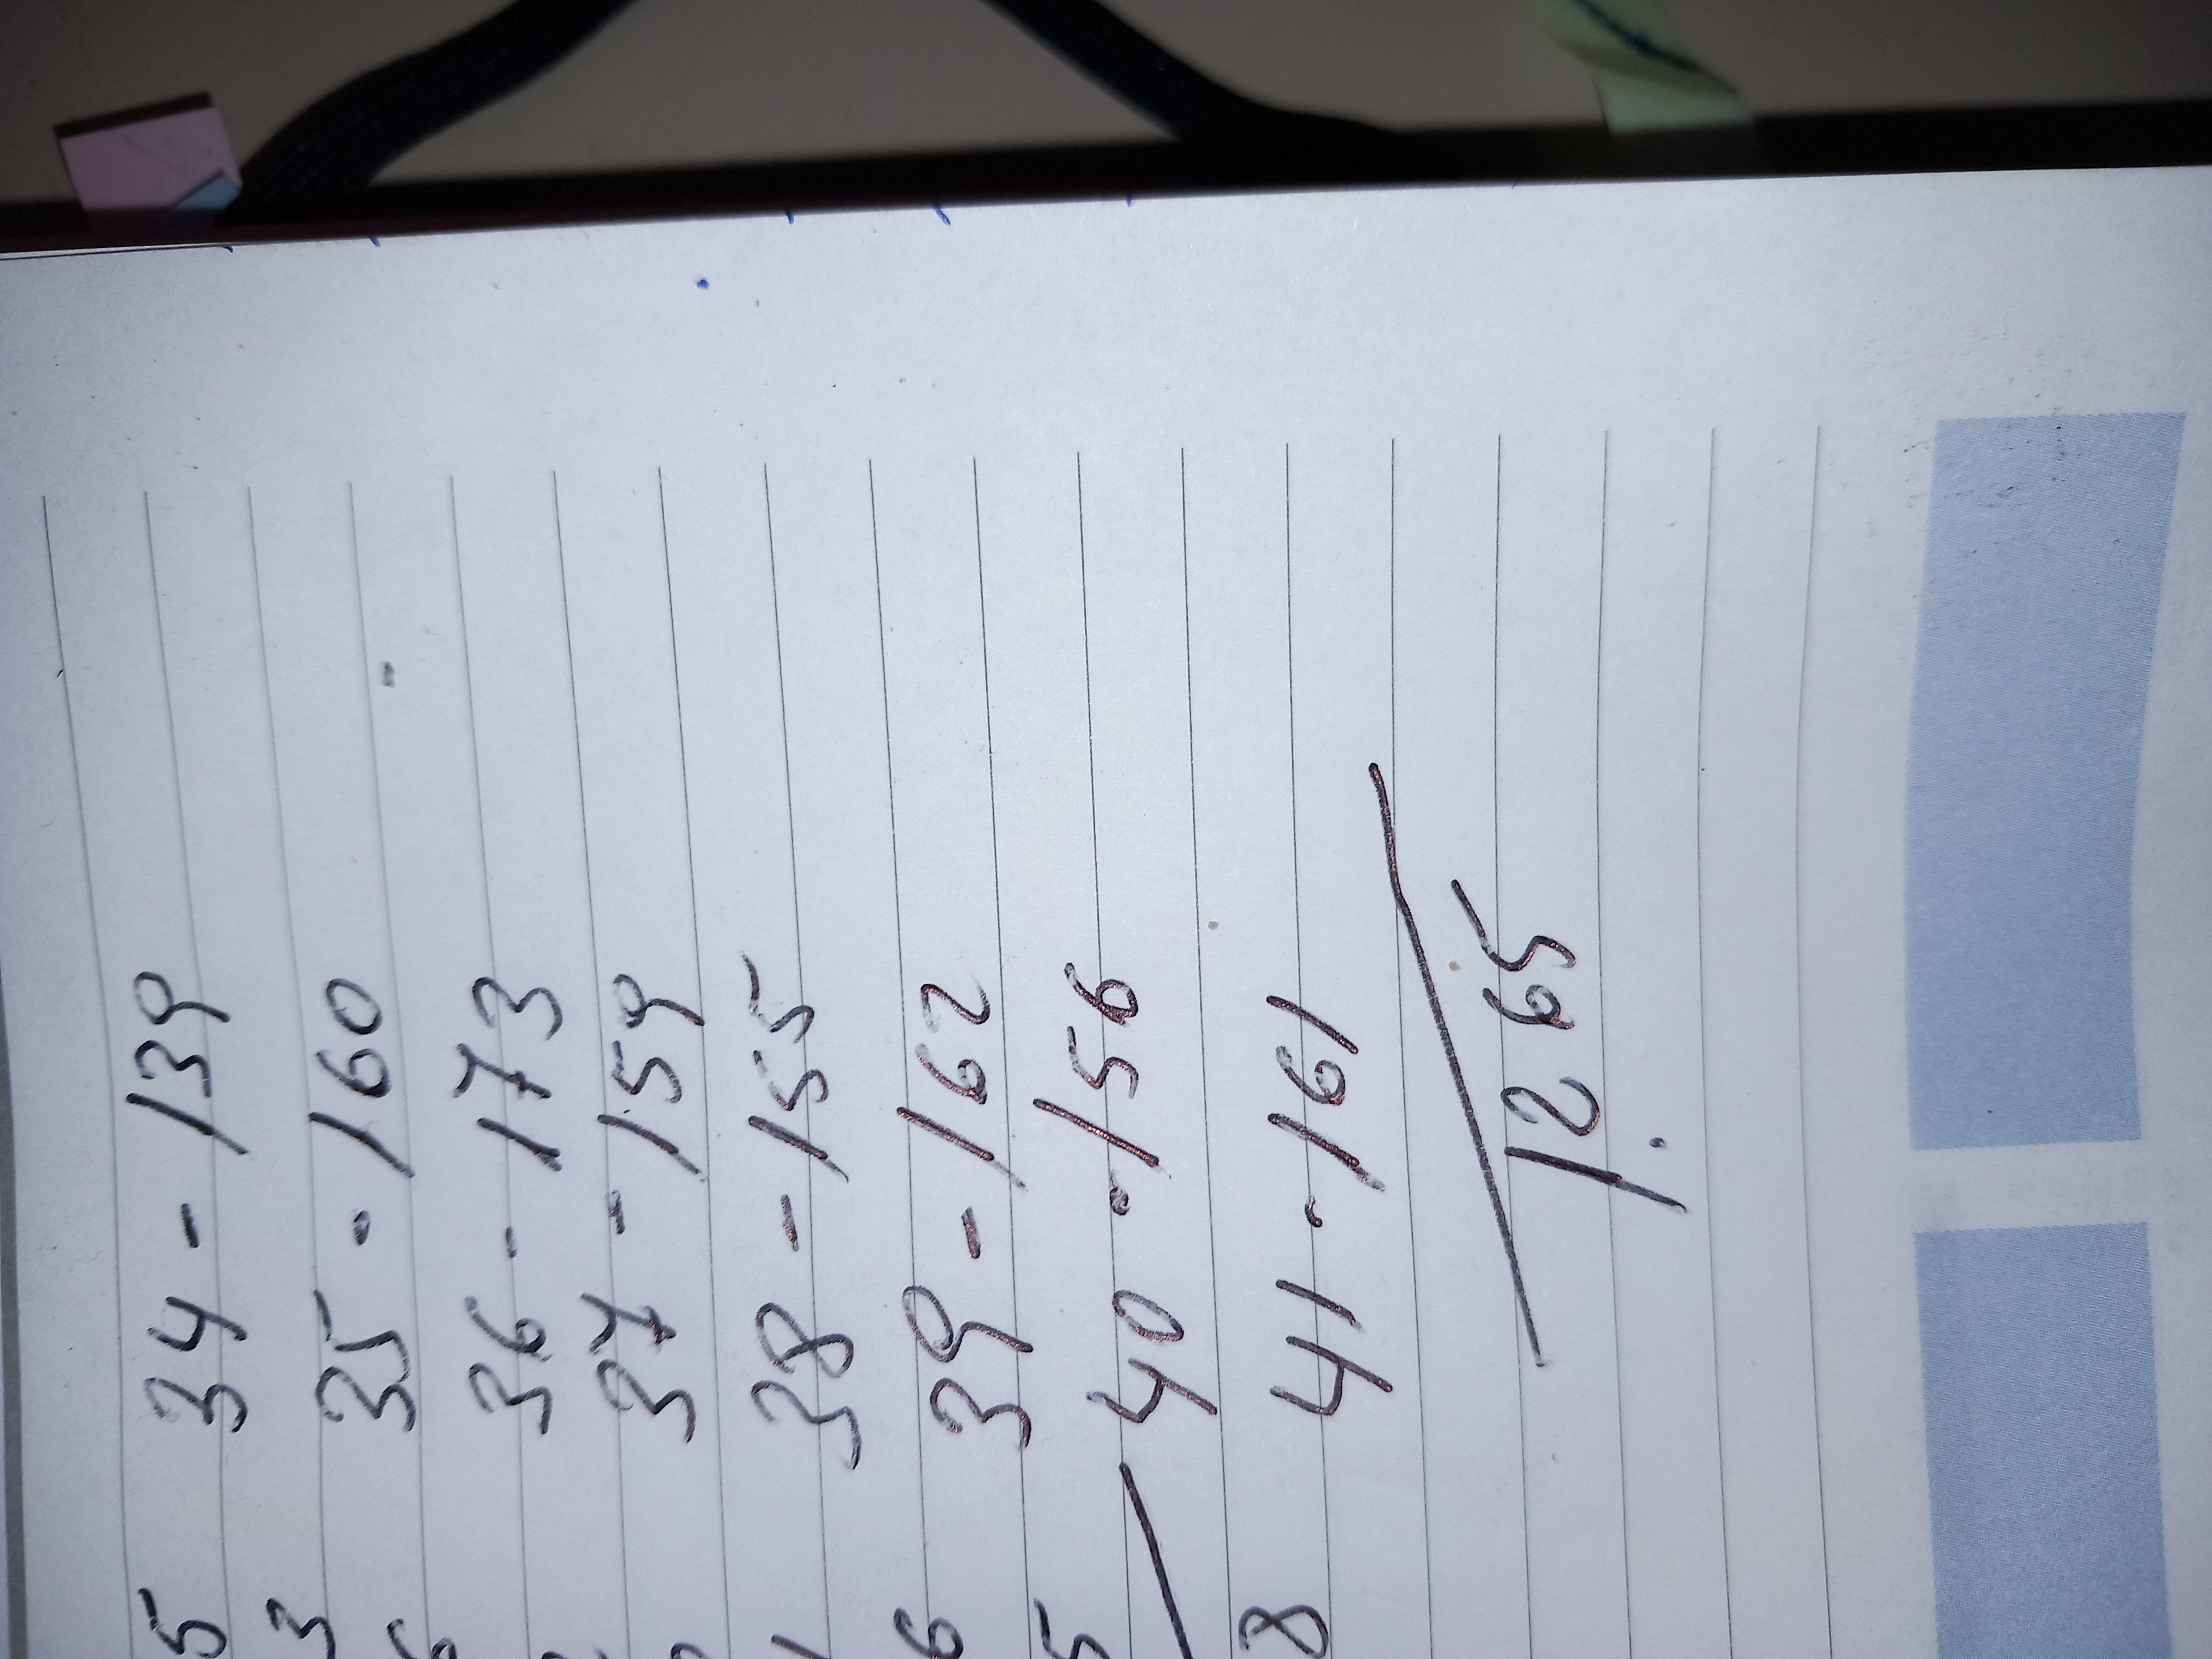 34 - 139
35 - 160
36 - 173
37 - 159
38 - 155
39 - 162
40 - 156
41 - 161
1265